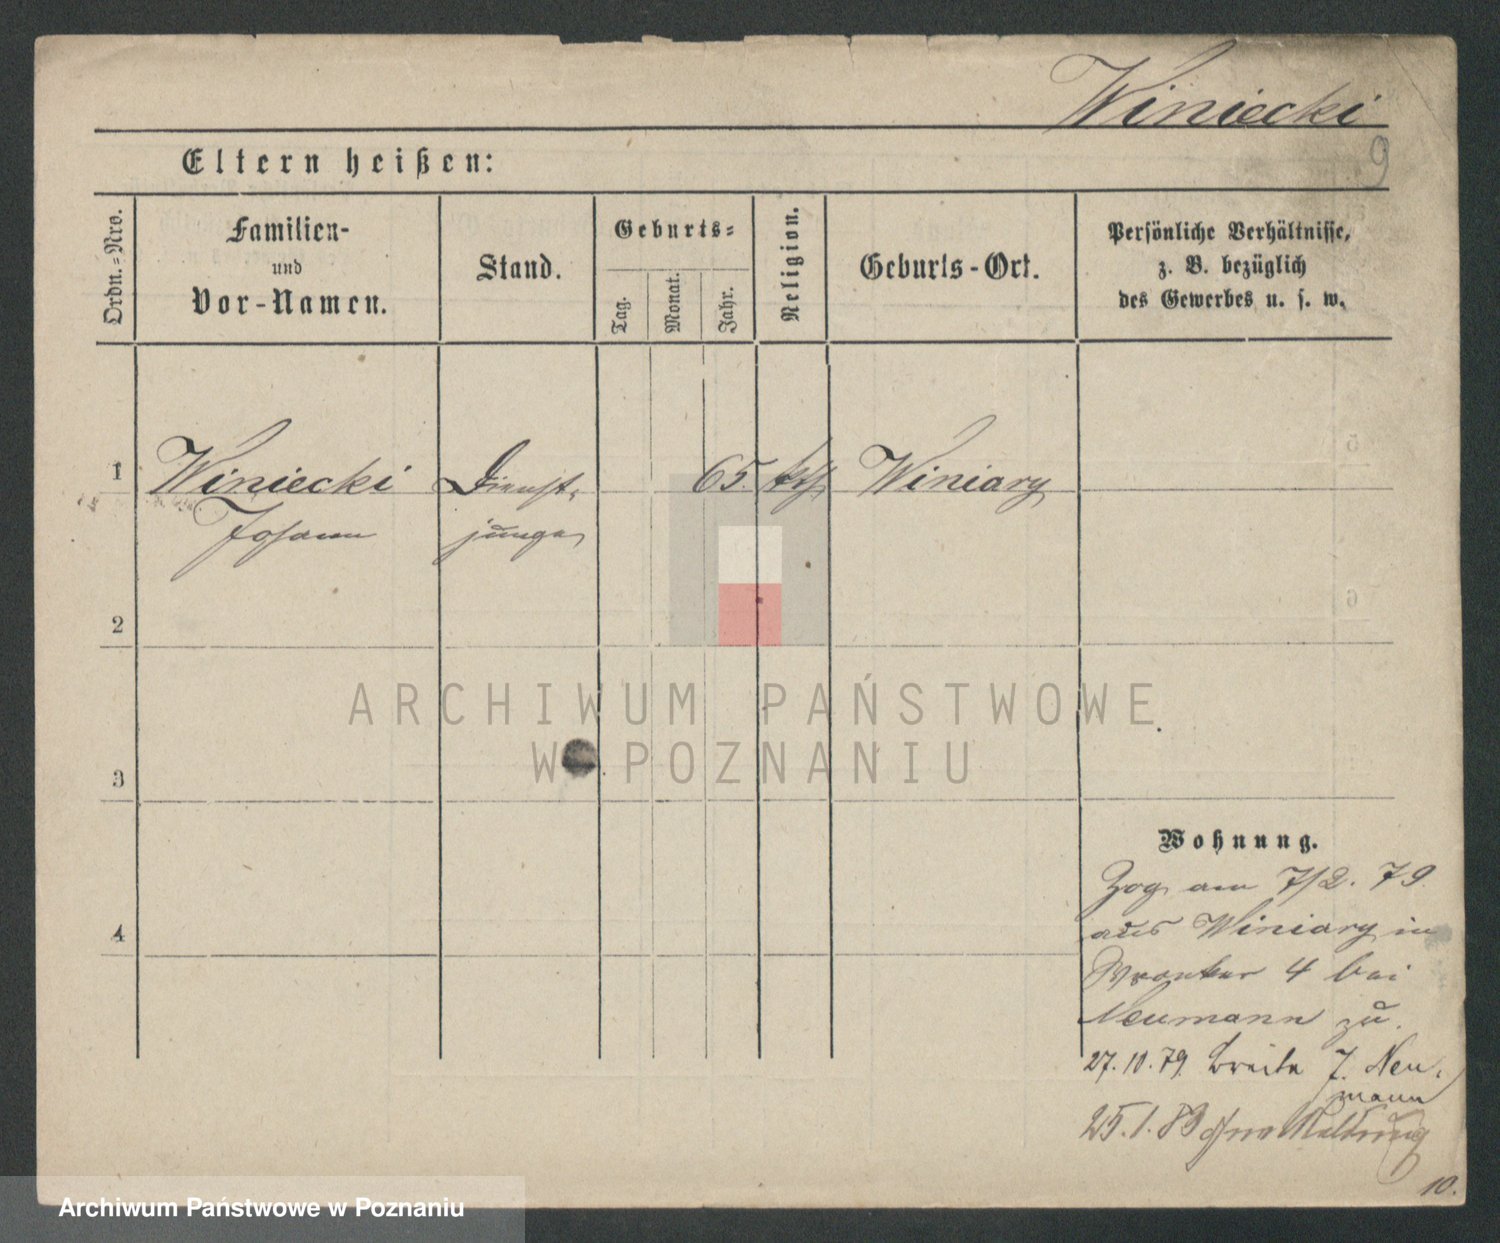 Winiecki
9
Eltern heißen:
Ordn.=Nro.
Familien-
und
Vor-Namen.
Stand.
Geburts=
Tag.
Monat.
Jahr.
Religion.
Geburts-Ort.
Persönliche Verhältnisse,
z. B. bezüglich
des Gewerbes u. s. w.
1
Winiecki
Johann
Dienst=
junge
65.
kth
Winiary
2
3
4
Wohnung.
Zog am 7/2. 79.
aus Winiary in
Wronker 4 bei
Neumann zu.
27.10.79. Breite 7. Neu=
mann
25.1.83 ohne Meldung
10.
ARCHIWUM PAŃSTWOWE
W POZNANIU
Archiwum Państwowe w Poznaniu